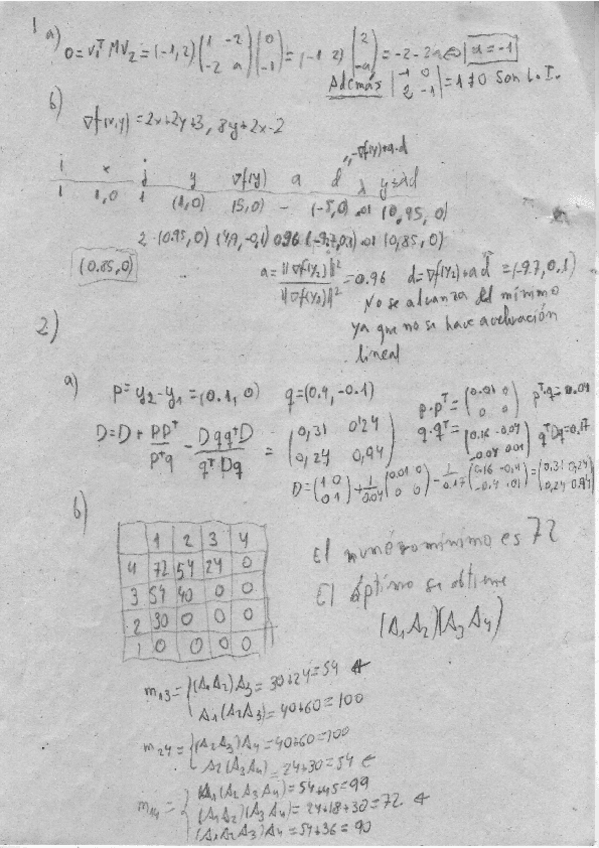 1 a) 0 = v₁ᵀ M v₂ = (-1, 2) (1 -2 / -2 a) (0 / -1) = (-1 2) (2 / -a) = -2-2a ⇔ a = -1
Además |-1 0 / 2 -1| = 1 ≠ 0 son L.I.
b)
∇f(x,y) = 2x+2y+3, 8y+2x-2
-∇f(y)+a·d
i x j y ∇f(y) a d λ y+λd
1 1,0 1 (1,0) (5,0) - (-5,0) .01 (0,95, 0)
2 (0.95, 0) (4,9, -0,1) 0.96 (-9.7,0.1) .01 (0,85, 0)
(0.85,0)
a = ||∇f(y₂)||² / ||∇f(y₁)||² = 0.96 d = -∇f(y₂)+a d = (-9.7, 0.1)
No se alcanza el mínimo
ya que no se hace aceleración
lineal
2)
a) p = y₂ - y₁ = (0.1, 0) q = (0.4, -0.1)
p·pᵀ = (0.01 0 / 0 0) pᵀ·q = 0.04
D = D + ppᵀ/pᵀq - DqqᵀD/qᵀDq = (0,31 0'24 / 0,24 0,94)
q·qᵀ = (0.16 -0.04 / -0.04 0.01) qᵀDq = 0.17
D = (1 0 / 0 1) + 1/0.04 (0.01 0 / 0 0) - 1/0.17 (0.16 -0.4 / -0.4 .01) = (0,31 0,24 / 0,24 0.94)
b)
1 2 3 4
4 72 54 24 0
3 54 40 0 0
2 30 0 0 0
1 0 0 0 0
El número mínimo es 72
El óptimo se obtiene
(A₁A₂)(A₃A₄)
m₁₃ = { (A₁A₂)A₃ = 30+24 = 54 ←
A₁(A₂A₃) = 40+60 = 100
m₂₄ = { (A₂A₃)A₄ = 40+60 = 100
A₂(A₃A₄) = 24+30 = 54 ←
m₁₄ = { A₁(A₂A₃A₄) = 54+45 = 99
(A₁A₂)(A₃A₄) = 24+18+30 = 72 ←
(A₁A₂A₃)A₄ = 54+36 = 90